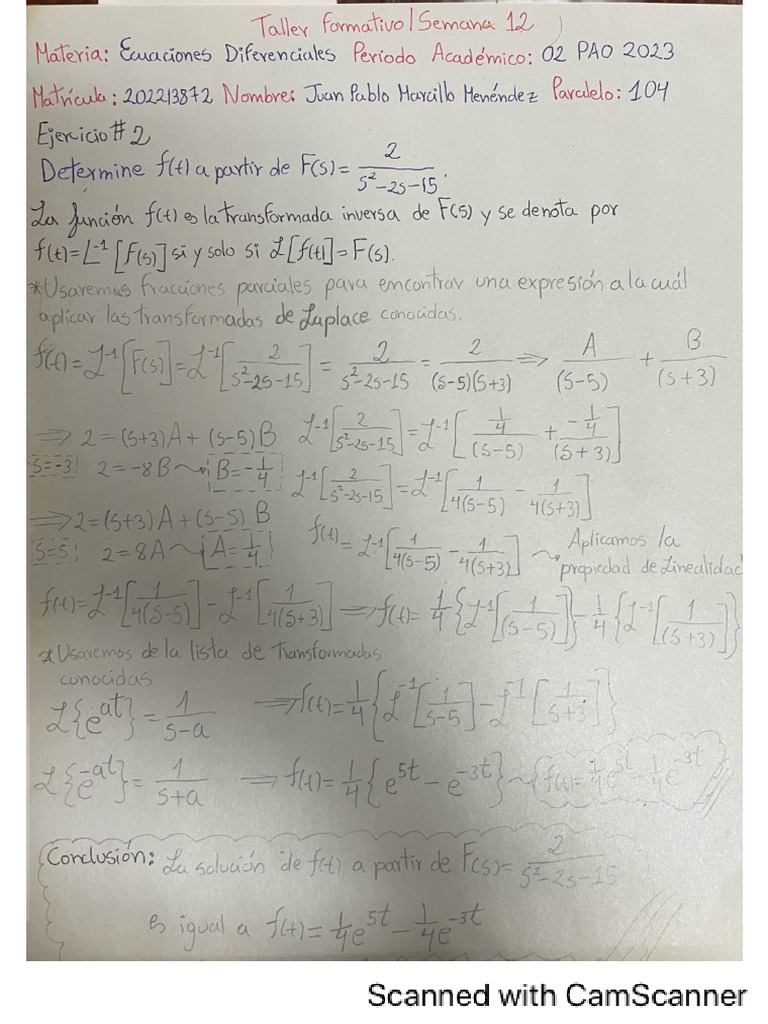 Taller Formativo | Semana 12
Materia: Ecuaciones Diferenciales Periodo Académico: 02 PAO 2023
Matrícula: 202213872 Nombre: Juan Pablo Marcillo Menéndez Paralelo: 104
Ejercicio # 2
Determine f(t) a partir de F(s) = 2/(s²-2s-15).
La función f(t) es la transformada inversa de F(s) y se denota por
f(t) = L⁻¹[F(s)] si y solo si L[f(t)] = F(s).
*Usaremos fracciones parciales para encontrar una expresión a la cuál
aplicar las transformadas de Laplace conocidas.
f(t) = L⁻¹[F(s)] = L⁻¹[2/(s²-2s-15)] = 2/(s²-2s-15) = 2/((s-5)(s+3)) ⇒ A/(s-5) + B/(s+3)
⇒ 2 = (s+3)A + (s-5)B L⁻¹[2/(s²-2s-15)] = L⁻¹[(1/4)/(s-5) + (-1/4)/(s+3)]
s=-3 2 = -8B ⤳ B = -1/4 L⁻¹[2/(s²-2s-15)] = L⁻¹[1/(4(s-5)) - 1/(4(s+3))]
⇒ 2 = (s+3)A + (s-5)B
s=5 2 = 8A ⤳ A = 1/4 f(t) = L⁻¹[1/(4(s-5)) - 1/(4(s+3))] ⤳ Aplicamos la
propiedad de Linealidad
f(t) = L⁻¹[1/(4(s-5))] - L⁻¹[1/(4(s+3))] ⇒ f(t) = 1/4{L⁻¹[1/(s-5)]} - 1/4{L⁻¹[1/(s+3)]}
*Usaremos de la lista de Transformadas
conocidas
L{e^at} = 1/(s-a) ⇒ f(t) = 1/4{L⁻¹[1/(s-5)] - L⁻¹[1/(s+3)]}
L{e^-at} = 1/(s+a) ⇒ f(t) = 1/4{e^5t - e^-3t} ⤳ f(t) = 1/4 e^5t - 1/4 e^-3t
Conclusión: La solución de f(t) a partir de F(s) = 2/(s²-2s-15)
es igual a f(t) = 1/4 e^5t - 1/4 e^-3t
Scanned with CamScanner